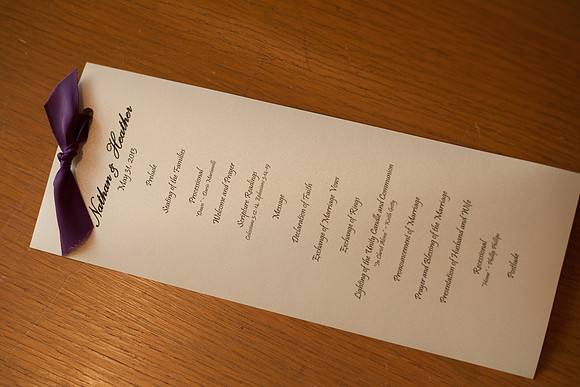 Nathan & Heather
May 31, 2013
Prelude
Seating of the Families
Processional
"Dawn" - Dario Marianelli
Welcome and Prayer
Scripture Readings
Colossians 3:12-14, Ephesians 5:21-29
Message
Declaration of Faith
Exchange of Marriage Vows
Exchange of Rings
Lighting of the Unity Candle and Communion
"In Christ Alone" - Keith Getty
Pronouncement of Marriage
Prayer and Blessing of the Marriage
Presentation of Husband and Wife
Recessional
"Home" - Phillip Phillips
Postlude